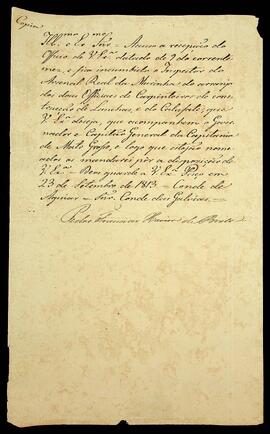 Copia
Illmo e Exmo Snr = Accuso a recepção do
Officio de V. Exa datado de 7 do corrente
mez, e fica incumbido o Inspector do
Arsenal Real da Marinha do arranjo
dos dous Officiaes de Carpinteiros de cons-
trucção de Lanchas, e de Calafate, que
V. Exa deseja, que acompanhem o Gover-
nador e Capitão General da Capitania
de Mato Grosso, e logo que estejão nome-
ados os mandarei pôr á disposição de
V. Exa = Deos guarde a V. Exa Paço em
23 de Setembro de 1813 = Conde de
Aguiar = Snr. Conde das Galveas.
Pedro Francisco Xavier de Brito